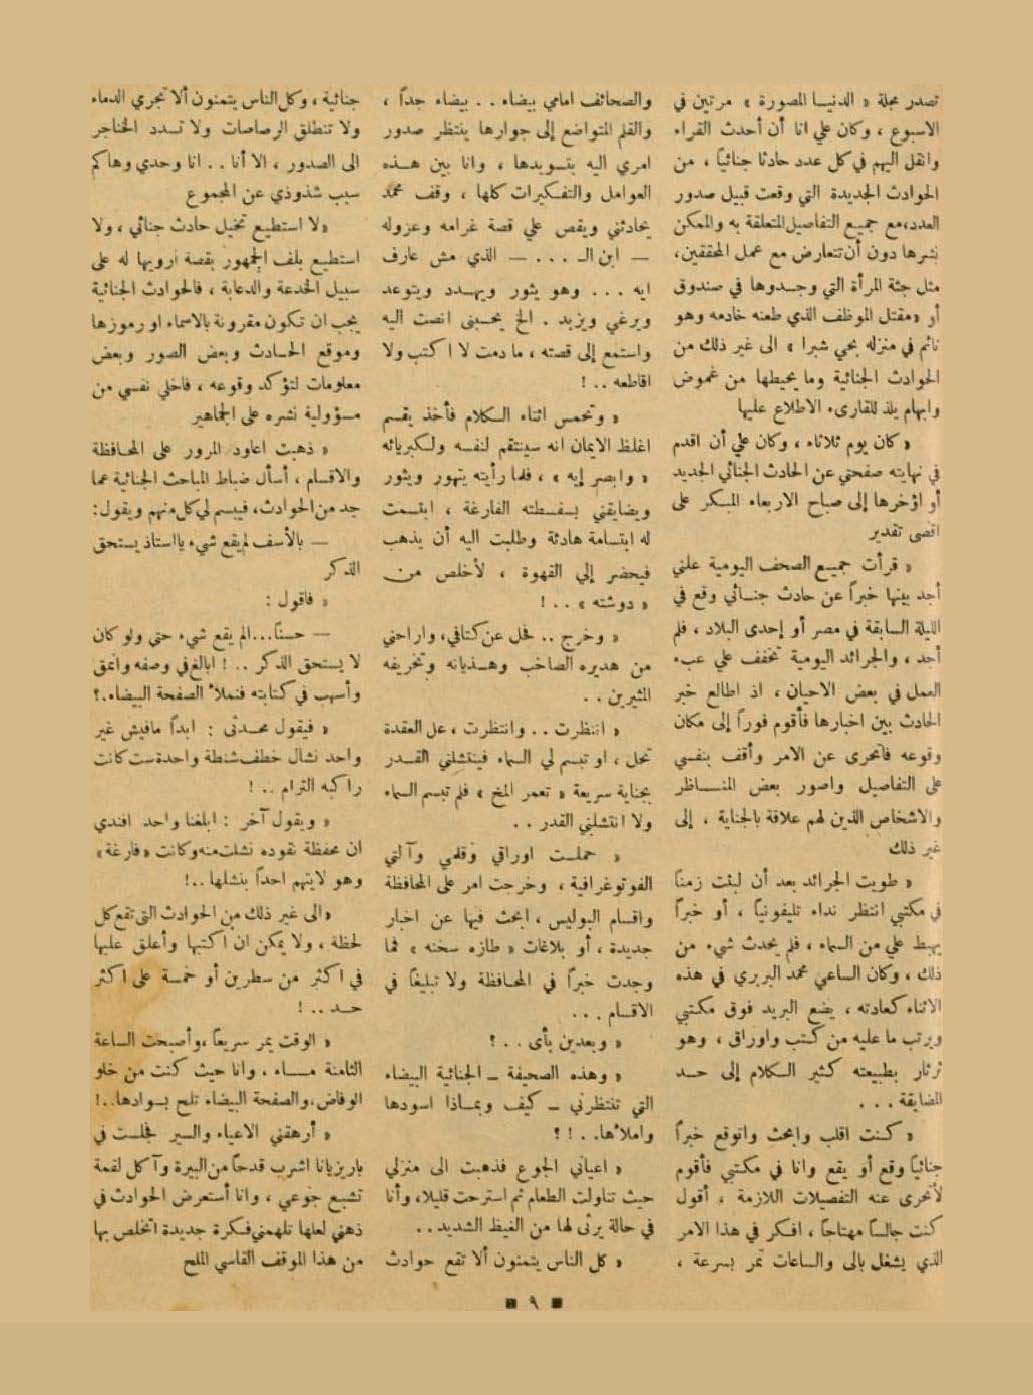 تصدر مجلة « الدنيا المصورة » مرتين في
الاسبوع ، وكان علي انا أن أحدث القراء
وانقل اليهم في كل عدد حادثا جنائياً ، من
الحوادث الجديدة التي وقعت قبيل صدور
العدد،مع جميع التفاصيل المتعلقة به والممكن
نشرها دون أن تتعارض مع عمل المحققين،
مثل جثة المرأة التي وجدوها في صندوق
أو «مقتل الموظف الذي طعنه خادمه وهو
نائم في منزله بحي شبرا » الى غير ذلك من
الحوادث الجنائية وما يحيطها من غموض
وابهام يلذ للقارىء الاطلاع عليها
« كان يوم ثلاثاء ، وكان علي أن اقدم
في نهايته صفحتي عن الحادث الجنائي الجديد
أو اؤخرها إلى صباح الاربعاء المبكر على
اقصى تقدير
« قرأت جميع الصحف اليومية علني
أجد بينها خبراً عن حادث جنائي وقع في
الليلة السابقة في مصر أو إحدى البلاد ، فلم
أجد ، والجرائد اليومية تخفف علي عبء
العمل في بعض الاحيان ، اذ اطالع خبر
الحادث بين اخبارها فأقوم فوراً إلى مكان
وقوعه فاتحرى عن الامر وأقف بنفسي
على التفاصيل واصور بعض المناظر
والاشخاص الذين لهم علاقة بالجناية ، إلى
غير ذلك
« طويت الجرائد بعد أن لبثت زمناً
في مكتبي انتظر نداء تليفونياً ، أو خبراً
يهبط علي من السماء ، فلم يحدث شيء من
ذلك ، وكان الساعي محمد البربري في هذه
الاثناء كعادته ، يضع البريد فوق مكتبي
ويرتب ما عليه من كتب واوراق ، وهو
ثرثار بطبيعته كثير الكلام إلى حد
المضايقة . . .
« كنت اقلب وابحث واتوقع خبراً
جنائياً وقع أو يقع وانا في مكتبي فأقوم
لأتحرى عنه التفصيلات اللازمة ، أقول
كنت جالساً مهتاجاً ، افكر في هذا الامر
الذي يشغل بالى والساعات تمر بسرعة ،
والصحائف امامي بيضاء . . بيضاء جداً ،
والقلم المتواضع إلى جوارها ينتظر صدور
امري اليه بتسويدها ، وانا بين هذه
العوامل والتفكيرات كلها ، وقف محمد
يحادثني ويقص علي قصة غرامه وعزوله
— ابن الـ . . . — الذي مش عارف
ايه . . . وهو يثور ويهدد ويتوعد
ويرغي ويزبد . الخ يحسبنى انصت اليه
واستمع إلى قصته ، ما دمت لا اكتب ولا
اقاطعه . . !
« وتحمس اثناء الكلام فأخذ يقسم
اغلظ الايمان انه سينتقم لنفسه ولكبريائه
« وابصر إيه » ، فلما رأيته يتهور ويثور
ويضايقني بسفسطته الفارغة ، ابتسمت
له ابتسامة هادئة وطلبت اليه أن يذهب
فيحضر إلي القهوة ، لأخلص من
« دوشته » . . !
« وخرج . . فحل عن كتافي، واراحني
من هديره الصاخب وهذيانه وتخريفه
المثيرين . .
« انتظرت . . وانتظرت ، عل العقدة
تحل ، او تبسم لي السماء فينتشلني القدر
بجناية سريعة « تعمر المخ » فلم تبسم السماء
ولا انتشلني القدر . .
« حملت اوراقي وقلمي وآلتي
الفوتوغرافية ، وخرجت امر على المحافظة
واقسام البوليس ، ابحث فيها عن اخبار
جديدة ، أو بلاغات « طازه سخنه » فما
وجدت خبراً في المحافظة ولا تبليغاً في
الاقسام . . .
« وبعدين بأى . . ؟
« وهذه الصحيفة ـ الجنائية البيضاء
التي تنتظرني ـ كيف وبماذا اسودها
واملأها. . ! ؟
« اعياني الجوع فذهبت الى منزلي
حيث تناولت الطعام ثم استرحت قليلا، وأنا
في حالة يرثى لها من الغيظ الشديد . .
« كل الناس يتمنون ألا تقع حوادث
جنائية ، وكل الناس يتمنون ألا تجري الدماء
ولا تنطلق الرصاصات ولا تسدد الخناجر
الى الصدور ، الا أنا . . انا وحدي وهاكم
سبب شذوذي عن المجموع
«لا استطيع تخيل حادث جنائي ، ولا
استطيع بلف الجمهور بقصة ارويها له على
سبيل الخدعة والدعابة ، فالحوادث الجنائية
يجب ان تكون مقرونة بالاسماء او رموزها
وموقع الحادث وبعض الصور وبعض
معلومات لتؤكد وقوعه ، فاخلي نفسي من
مسؤولية نشره على الجماهير
« ذهبت اعاود المرور على المحافظة
والاقسام ، أسأل ضباط المباحث الجنائية عما
جد من الحوادث، فيبسم لي كل منهم ويقول:
— بالأسف لم يقع شيء يااستاذ يستحق
الذكر
« فاقول :
— حسنًا...الم يقع شيء حتى ولو كان
لا يستحق الذكر . . ! ابالغ في وصفه وانمق
وأسهب في كتابته فنملأ الصفحة البيضاء.؟
« فيقول محدثى : ابداً مافيش غير
واحد نشال خطف شنطة واحدة ست كانت
راكبه الترام . . !
« ويقول آخر : ابلغنا واحد افندي
ان محفظة نقوده نشلت منه وكانت «فارغة»
وهو لايتهم احداً بنشلها . .!
«الى غير ذلك من الحوادث التى تقع كل
لحظة ، ولا يمكن ان اكتبها وأعلق عليها
في اكثر من سطرين أو خمسة على اكثر
حد . . !
« الوقت يمر سريعاً ،وأصبحت الساعة
الثامنة مساء ، وانا حيث كنت من خلو
الوفاض،والصفحة البيضاء تلح بسوادها..!
« أرهقني الاعياء والسير فجلست في
باريزيانا اشرب قدحاً من البيرة وآكل لقمة
تشبع جوعي ، وانا أستعرض الحوادث في
ذهني لعلها تلهمني فكرة جديدة اتخلص بها
من هذا الموقف القاسي الملح
٩